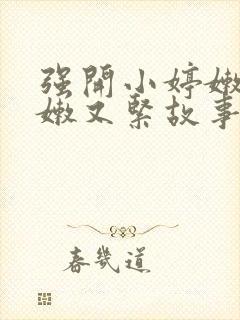 强開小婷嫩
嫩又緊故事
春幾道